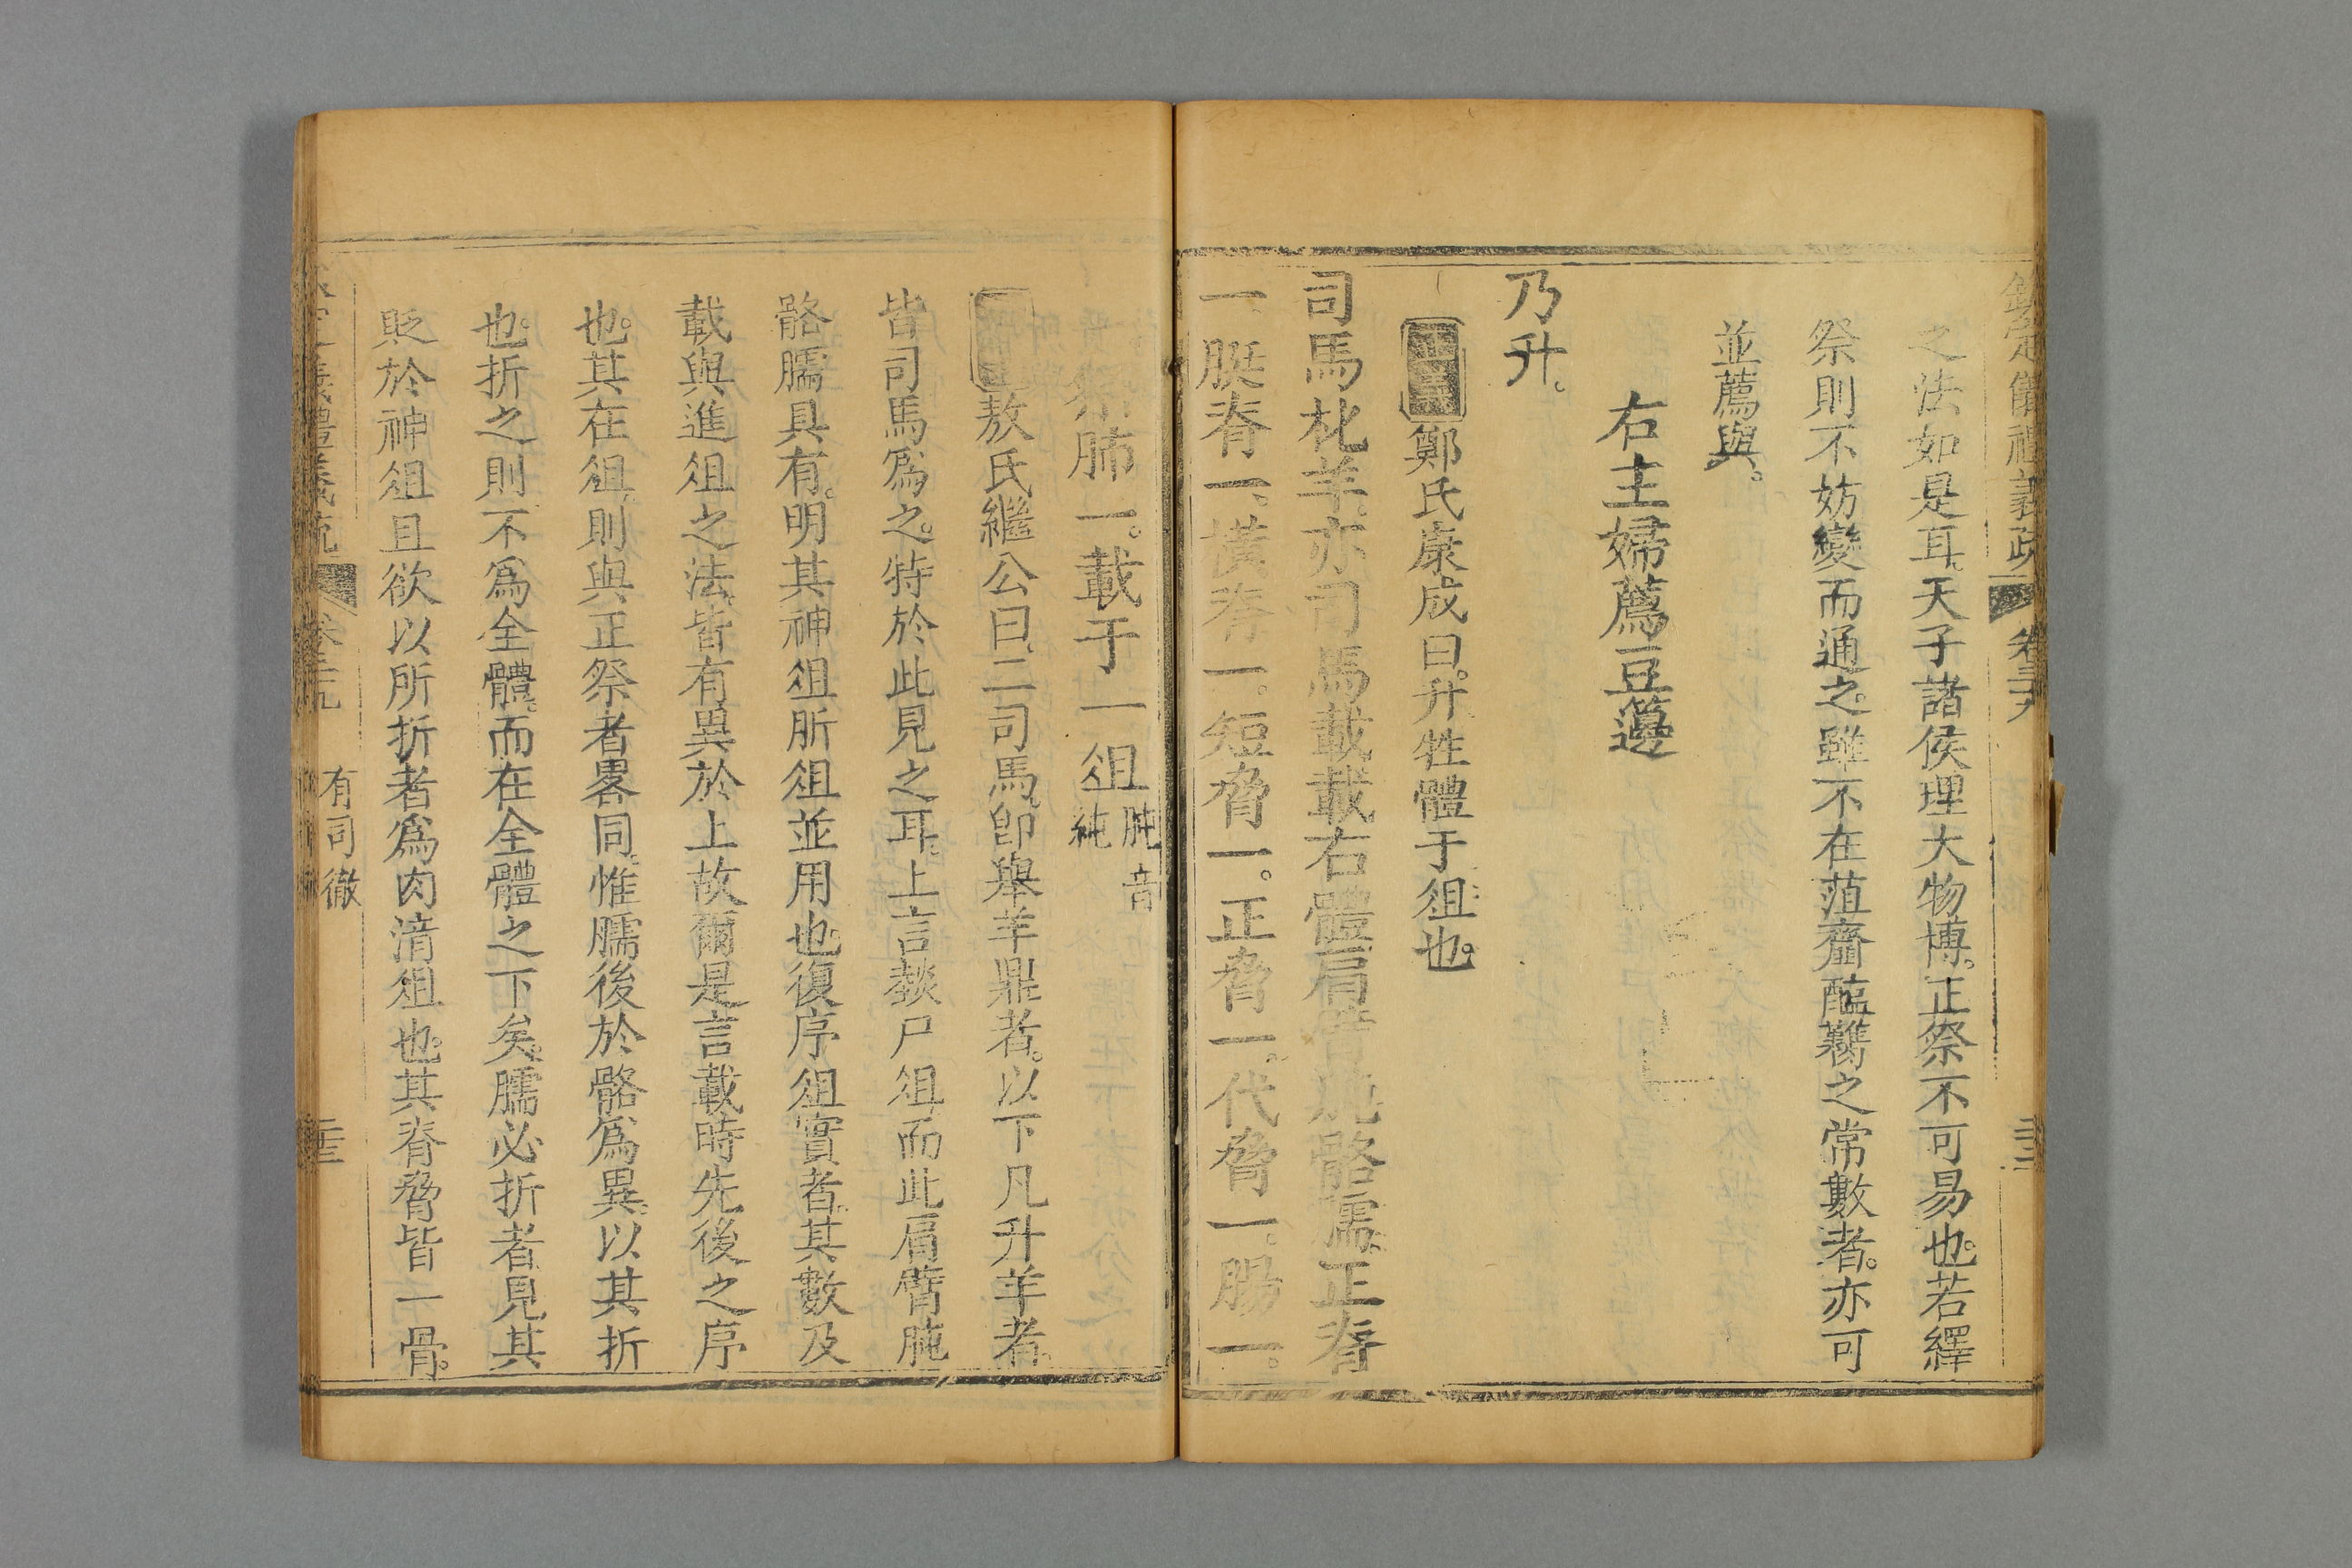 欽定儀禮義疏 卷三十九
之法如是耳。天子諸侯理大物博。正祭不可易也。若繹
祭則不妨變而通之。雖不在菹齏醢臡之常數者。亦可
並薦與。
右主婦薦豆籩
乃升。
鄭氏康成曰。升牲體于俎也。
司馬朼羊。亦司馬載載右體肩臂肫骼臑。正脊
一。脡脊一。橫脊一。短脅一。正脅一。代脅一。腸一。
祭肺一。載于一俎 肫音純
敖氏繼公曰。二司馬。卽舉羊鼎者。以下凡升羊者。
皆司馬爲之。特於此見之耳。上言燅尸俎而此肩臂肫
骼臑具有。明其神俎肵俎並用也。復序俎實者。其數及
載與進俎之法。皆有異於上故爾是言載時先後之序
也。其在俎。則與正祭者畧同。惟臑後於骼爲異。以其折
也。折之則不爲全體。而在全體之下矣。臑必折者見其
貶於神俎且欲以所折者爲肉湆俎也。其脊脅皆一骨。
欽定儀禮義疏 卷三十九 有司徹